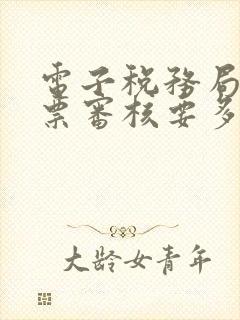 電子稅務局
票審核要多
大齡女青年